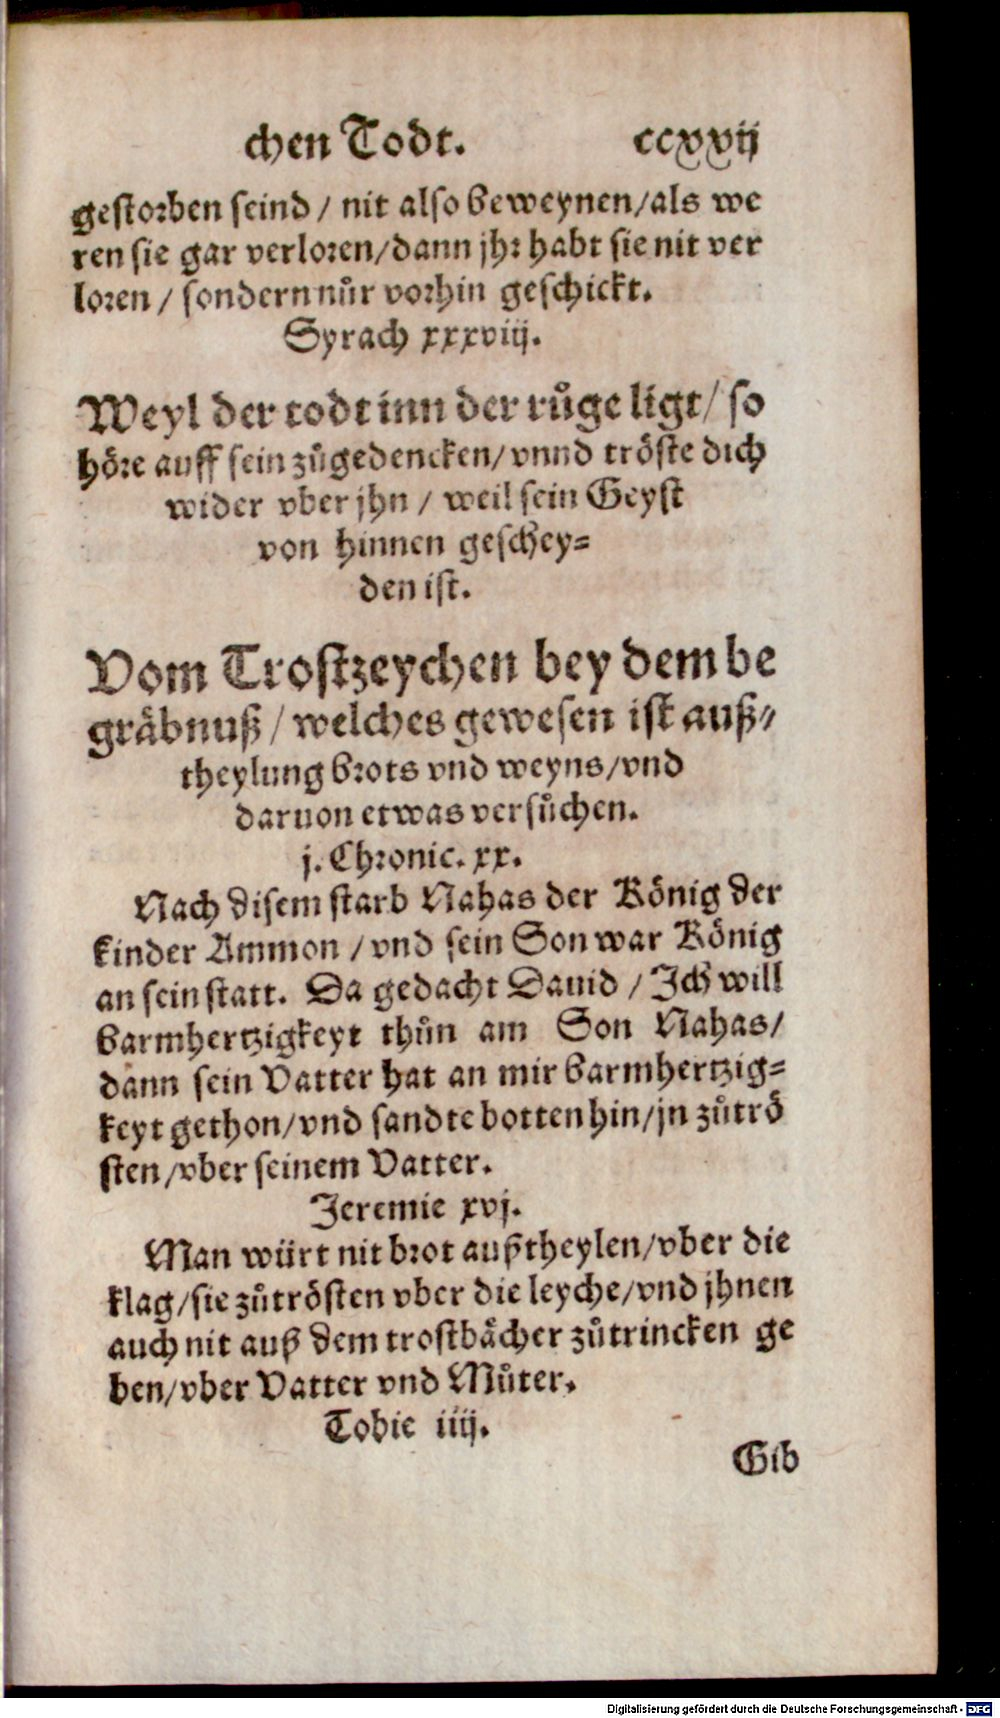 chen Todt. ccxxvij
gestorben seind / nit also beweynen/als we
ren sie gar verloren/dann jhr habt sie nit ver
loren / sondern nůr vorhin geschickt.
Syrach xxxviij.
Weyl der todt inn der růge ligt/ so
höre auff sein zůgedencken/vnnd tröste dich
wider vber jhn / weil sein Geyst
von hinnen geschey=
den ist.
Vom Trostzeychen bey dem be
gräbnuß / welches gewesen ist auß=
theylung brots vnd weyns/vnd
daruon etwas versůchen.
j. Chronic. xx.
Nach disem starb Nahas der König der
kinder Ammon / vnd sein Son war König
an sein statt. Da gedacht Dauid / Ich will
barmhertzigkeyt thůn am Son Nahas/
dann sein Vatter hat an mir barmhertzig=
keyt gethon/vnd sandte botten hin/jn zůtrö
sten/vber seinem Vatter.
Jeremie xvj.
Man würt nit brot außtheylen/vber die
klag/sie zůtrösten vber die leyche/vnd jhnen
auch nit auß dem trostbächer zůtrincken ge
ben/vber Vatter vnd Můter.
Tobie iiij.
Gib
Digitalisierung gefördert durch die Deutsche Forschungsgemeinschaft - DFG